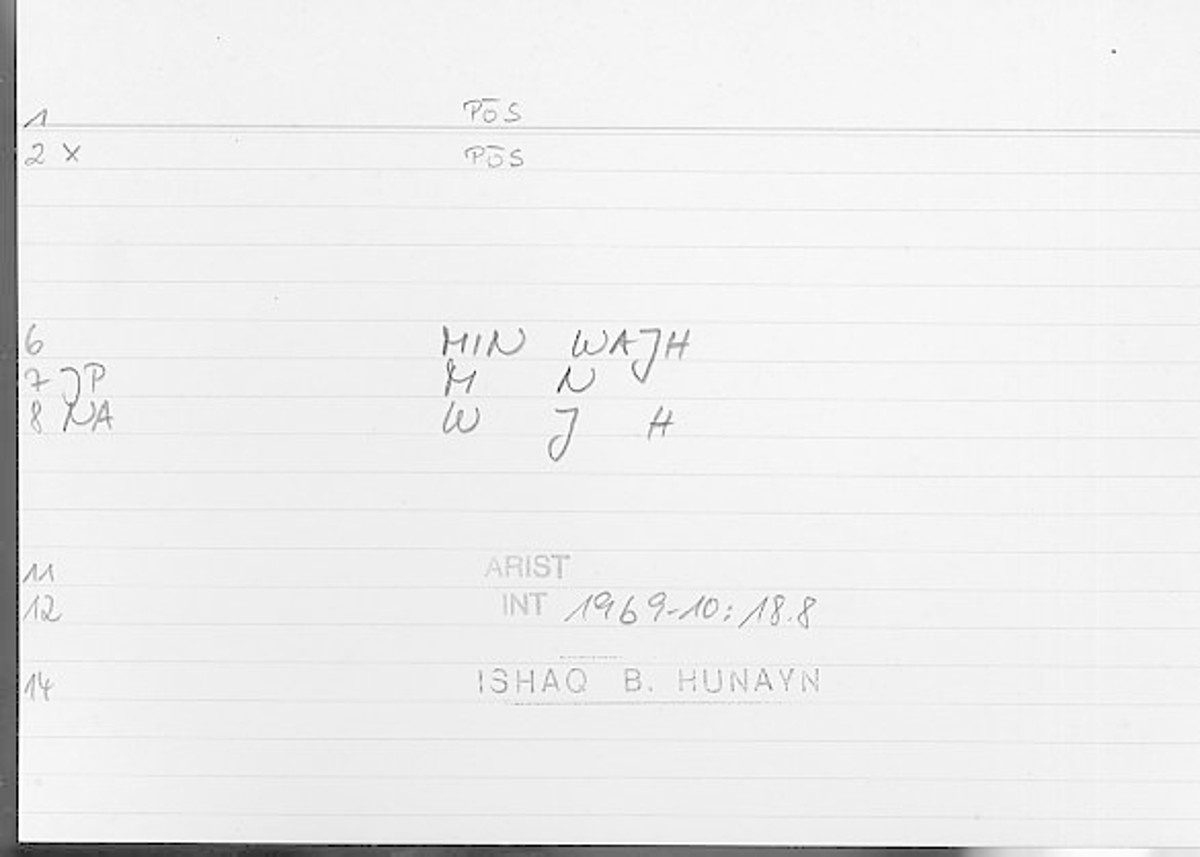 1 PŌS
2 x PŌS
6 MIN WAJH
7 JP M N
8 NA W J H
11 ARIST
12 INT 1969-10: 18.8
14 ISHAQ B. HUNAYN